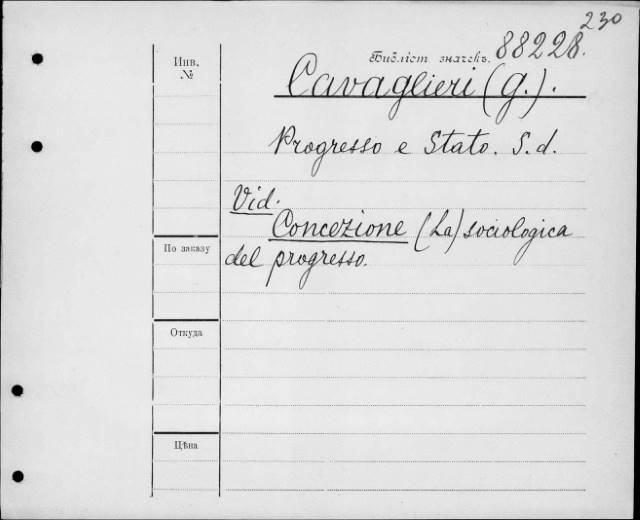 230
Инв.
№
Библіот. значекъ. 88228.
Cavaglieri (G.).
Progresso e Stato. S. d.
Vid.
Concezione (La) sociologica
del progresso.
По заказу
Откуда
Цѣна